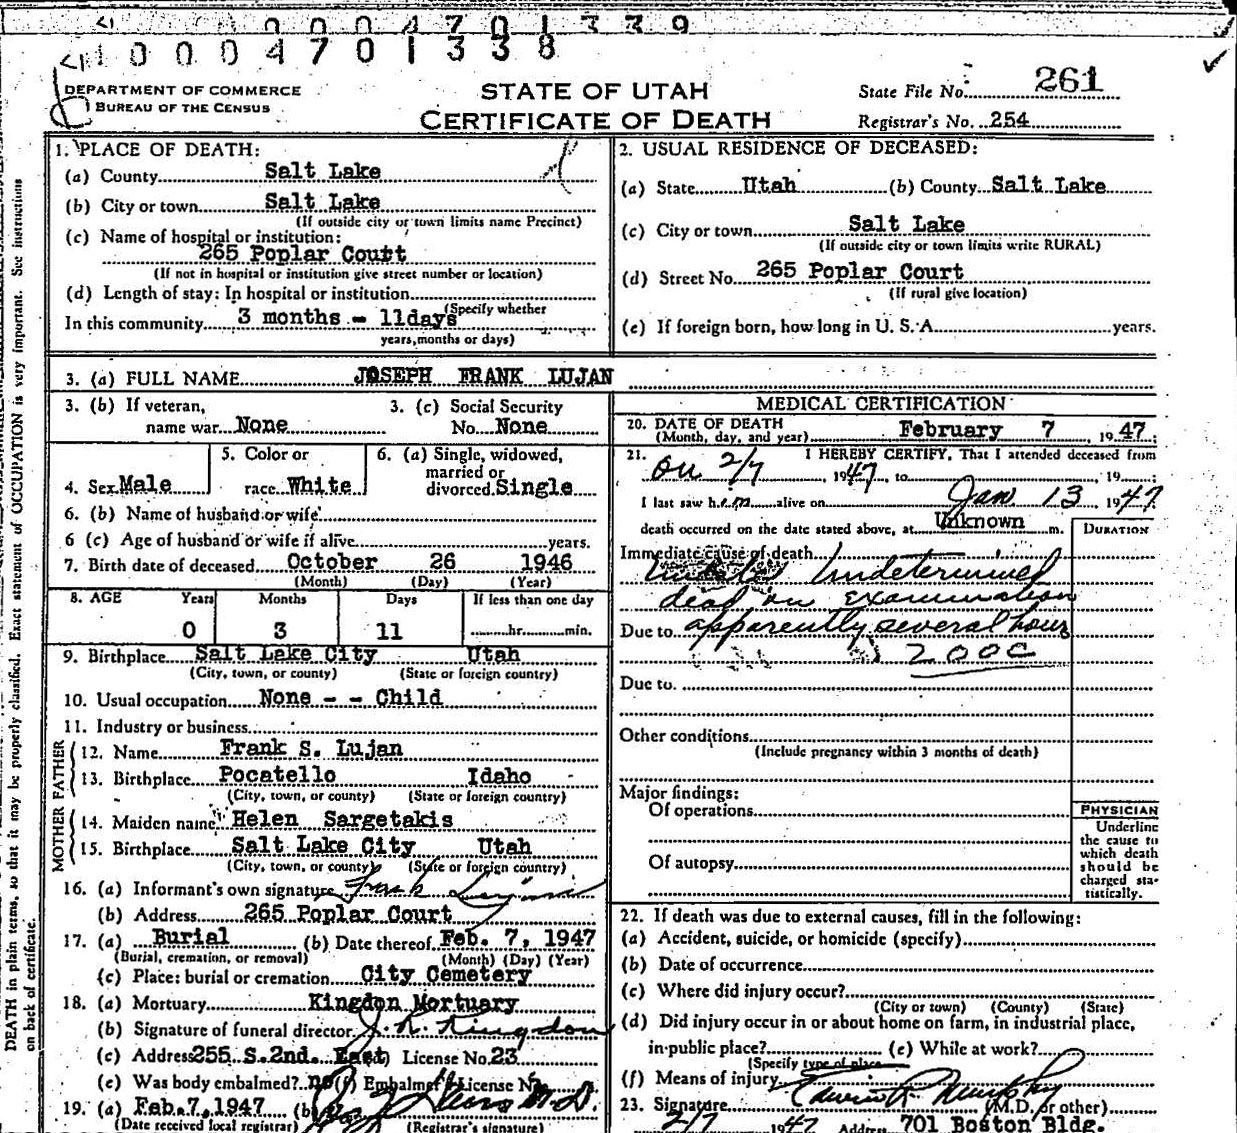 0004701339
0004701338
DEPARTMENT OF COMMERCE
BUREAU OF THE CENSUS
STATE OF UTAH
CERTIFICATE OF DEATH
State File No. 261
Registrar's No. 254
1. PLACE OF DEATH:
(a) County Salt Lake
(b) City or town Salt Lake
(If outside city or town limits name Precinct)
(c) Name of hospital or institution:
265 Poplar Court
(If not in hospital or institution give street number or location)
(d) Length of stay: In hospital or institution
(Specify whether
In this community 3 months - 11days
years, months or days)
2. USUAL RESIDENCE OF DECEASED:
(a) State Utah (b) County Salt Lake
(c) City or town Salt Lake
(If outside city or town limits write RURAL)
(d) Street No. 265 Poplar Court
(If rural give location)
(e) If foreign born, how long in U. S. A. years.
3. (a) FULL NAME JOSEPH FRANK LUJAN
3. (b) If veteran, 3. (c) Social Security
name war None No. None
5. Color or 6. (a) Single, widowed,
married or
4. Sex Male race White divorced Single
6. (b) Name of husband or wife
6 (c) Age of husband or wife if alive years.
7. Birth date of deceased October 26 1946
(Month) (Day) (Year)
8. AGE Years Months Days If less than one day
0 3 11 hr. min.
9. Birthplace Salt Lake City Utah
(City, town, or county) (State or foreign country)
10. Usual occupation None - - Child
11. Industry or business
FATHER
12. Name Frank S. Lujan
13. Birthplace Pocatello Idaho
(City, town, or county) (State or foreign country)
MOTHER
14. Maiden name Helen Sargetakis
15. Birthplace Salt Lake City Utah
(City, town, or county) (State or foreign country)
16. (a) Informant's own signature Frank Lujan
(b) Address 265 Poplar Court
17. (a) Burial (b) Date thereof Feb. 7, 1947
(Burial, cremation, or removal) (Month) (Day) (Year)
(c) Place: burial or cremation City Cemetery
18. (a) Mortuary Kingdon Mortuary
(b) Signature of funeral director J. R. Kingdon
(c) Address 255 S. 2nd. East License No. 23
(e) Was body embalmed? no (f) Embalmer's License No.
19. (a) Feb. 7, 1947 (b) M.D.
(Date received local registrar) (Registrar's signature)
MEDICAL CERTIFICATION
20. DATE OF DEATH
(Month, day, and year) February 7, 1947;
21. I HEREBY CERTIFY, That I attended deceased from
on 2/7, 1947, to, 19
I last saw him alive on Jan 13 1947
death occurred on the date stated above, at Unknown m.
DURATION
Immediate cause of death
Undetermined
dead on examination
Due to apparently several hour
200c
Due to
Other conditions
(Include pregnancy within 3 months of death)
Major findings:
Of operations
Of autopsy
PHYSICIAN
Underline
the cause to
which death
should be
charged sta-
tistically.
22. If death was due to external causes, fill in the following:
(a) Accident, suicide, or homicide (specify)
(b) Date of occurrence
(c) Where did injury occur?
(City or town) (County) (State)
(d) Did injury occur in or about home on farm, in industrial place,
in public place? (e) While at work?
(Specify type of place
(f) Means of injury
23. Signature Murphy (M.D. or other)
2/7 1947 Address 701 Boston Bldg.
DEATH in plain terms, so that it may be properly classified. Exact statement of OCCUPATION is very important. See instructions
on back of certificate.